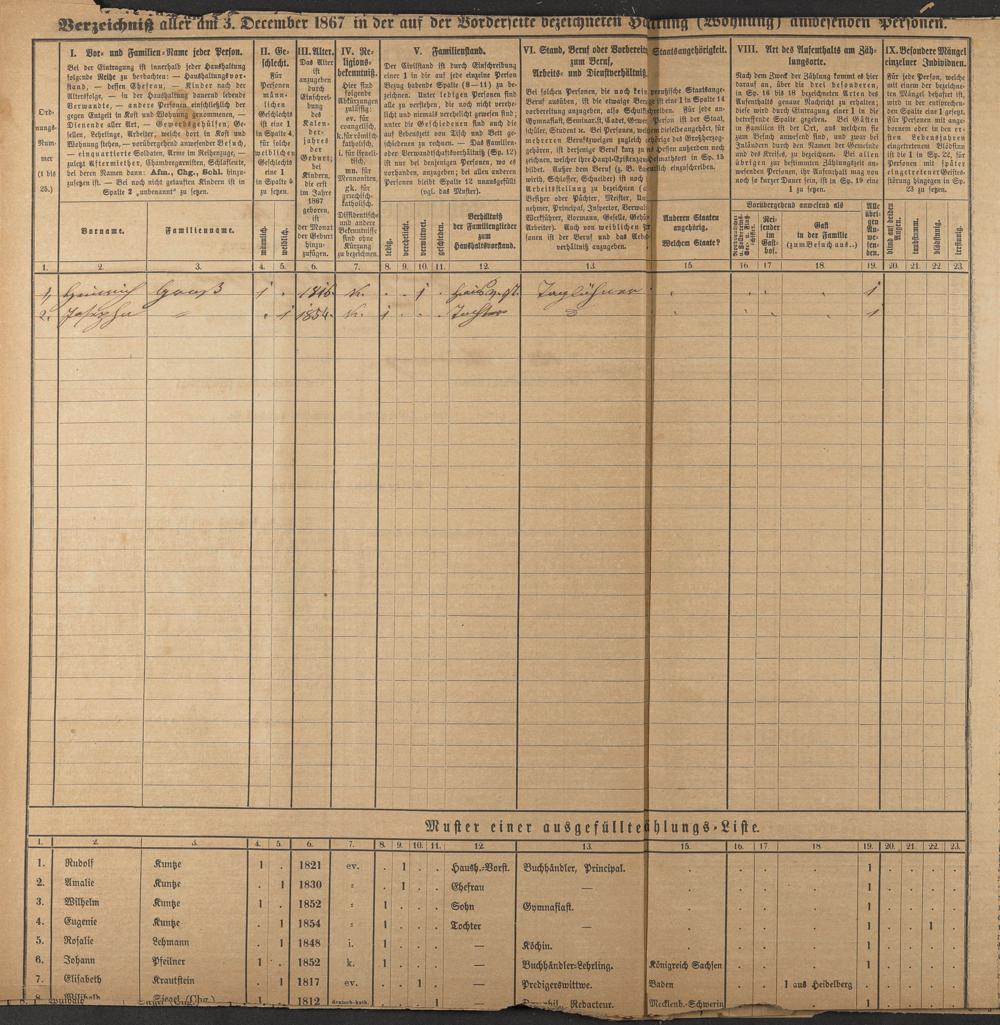 Verzeichniß aller am 3. December 1867 in der auf der Vorderseite bezeichneten (Wohnung) anwesenden Personen.
Ord-
nungs-
Num-
mer
(1 bis
25.)
I. Vor- und Familien-Name jeder Person.
Bei der Eintragung ist innerhalb jeder Haushaltung
folgende Reihe zu beobachten: — Haushaltungsvor-
stand, — dessen Ehefrau, — Kinder nach der
Altersfolge, — in der Haushaltung dauernd lebende
Verwandte, — andere Personen einschließlich der
gegen Entgelt in Kost und Wohnung genommenen, —
Dienende aller Art, — Gewerbsgehülfen, Ge-
sellen, Lehrlinge, Arbeiter, welche dort in Kost und
Wohnung stehen, — vorübergehend anwesender Besuch,
— einquartierte Soldaten, Arme im Reihenzuge, —
zuletzt Aftermiether, Chambregarnisten, Schlafleute,
bei deren Namen dann: Afm., Chg., Schl. hinzu-
zusetzen ist. — Bei noch nicht getauften Kindern ist in
Spalte 2 „unbenannt“ zu setzen.
Vorname. Familienname.
II. Ge-
schlecht.
Für
Personen
männ-
lichen
Geschlechts
ist eine 1
in Spalte 4,
für solche
weiblichen
Geschlechts
eine 1
in Spalte 5
zu setzen.
männlich. weiblich.
III. Alter.
Das Alter
ist
anzugeben
durch
Einschrei-
bung
des
Kalen-
der-
jahres
der
Geburt;
bei
Kindern,
die erst
im Jahre
1867
geboren,
ist
der Monat
der Geburt
hinzu-
zufügen.
IV. Re-
ligions-
bekenntniß.
Hier sind
folgende
Abkürzungen
zulässig:
ev. für
evangelisch,
k. für römisch-
katholisch,
i. für israeli-
tisch,
mn. für
Mennoniten,
gk. für
griechisch-
katholisch.
Dissidentische
und andere
Bekenntnisse
sind ohne
Kürzung
zu bezeichnen.
V. Familienstand.
Der Civilstand ist durch Einschreibung
einer 1 in die auf jede einzelne Person
Bezug habende Spalte (8—11) zu be-
zeichnen. Unter ledigen Personen sind
alle zu verstehen, die noch nicht verehe-
licht und niemals verehelicht gewesen sind;
unter die Geschiedenen sind auch die
auf Lebenszeit von Tisch und Bett ge-
schiedenen zu rechnen. — Das Familien-
oder Verwandtschaftsverhältniß (Sp. 12)
ist nur bei denjenigen Personen, wo es
vorhanden, anzugeben; bei allen anderen
Personen bleibt Spalte 12 unausgefüllt
(vgl. das Muster).
ledig. verehelicht. verwitwet. geschieden.
Verhältniß
der Familienglieder
zum
Haushaltsvorstand.
VI. Stand, Beruf oder Vorbereit
zum Beruf,
Arbeits- und Dienstverhältniß
Bei solchen Personen, die noch kein
Beruf ausüben, ist die etwaige Berufs
vorbereitung anzugeben, also
Gymnasiast, Seminarist, Cadet, Gewer
schüler, Student ꝛc. Bei Personen, welche
mehreren Berufszweigen zugleich
gehören, ist derjenige Beruf kurz zu
zeichnen, welcher ihre Haupt-
bildet. Außer dem Beruf (z. B.
wirth, Schlosser, Schneider) ist noch
Arbeitsstellung zu bezeichnen
Besitzer oder Pächter, Meister,
nehmer, Principal, Inspector,
Werkführer, Vormann, Geselle,
Arbeiter). Auch von weiblichen
sonen ist der Beruf und das
Staatsangehörigkeit.
eine 1 in Spalte 14
Für jede an-
Person ist der Staat,
angehört, für
das Großherzog-
außerdem noch
in Sp. 15
einzuschreiben.
Anderen Staaten
angehörig.
Welchem Staate?
VIII. Art des Aufenthalts am Zäh-
lungsorte.
Nach dem Zweck der Zählung kommt es hier
darauf an, über die drei besonderen,
in Sp. 16 bis 18 bezeichneten Arten des
Aufenthalts genaue Nachricht zu erhalten;
diese wird durch Eintragung einer 1 in die
betreffende Spalte gegeben. Bei Gästen
in Familien ist der Ort, aus welchem sie
zum Besuch anwesend sind, und zwar bei
Inländern durch den Namen der Gemeinde
und des Kreises, zu bezeichnen. Bei allen
übrigen zur bestimmten Zählungszeit an-
wesenden Personen, ihr Aufenthalt mag von
noch so kurzer Dauer sein, ist in Sp. 19 eine
1 zu setzen.
Vorübergehend anwesend als
Rei-
sender
im
Gast-
hof.
Gast
in der Familie
(zum Besuch aus..)
Alle
übri-
gen
An-
we-
sen-
den.
IX. Besondere Mängel
einzelner Individuen.
Für jede Person, welche
mit einem der bezeichne-
ten Mängel behaftet ist,
wird in der entsprechen-
den Spalte eine 1 gesetzt.
Für Personen mit ange-
bornem oder in den er-
sten Lebensjahren
eingetretenem Blödsinn
ist die 1 in Sp. 22, für
Personen mit später
eingetretener Geistes-
störung hingegen in Sp.
23 zu setzen.
blind auf beiden Augen. taubstumm. blödsinnig. irrsinnig.
1. 2. 3. 4. 5. 6. 7. 8. 9. 10. 11. 12. 13. 15. 16. 17. 18. 19. 20. 21. 22. 23.
1. Heinrich 1 . 1816. k. . . 1 . Taglöhner . . . . 1
2. Josepha " . 1 1854. k. 1 . . . Tochter . . . . 1
Muster einer ausgefüllte ählungs-Liste.
1. 2. 3. 4. 5. 6. 7. 8. 9. 10. 11. 12. 13. 15. 16. 17. 18 19. 20. 21. 22. 23.
1. Rudolf Kuntze 1 . 1821 ev. . 1 . . Haush.-Vorst. Buchhändler, Principal. . . . . 1 . . . .
2. Amalie Kuntze . 1 1830 " . 1 . . Ehefrau — . . . . 1 . . . .
3. Wilhelm Kuntze 1 . 1852 " 1 . . . Sohn Gymnasiast. . . . . 1 . . . .
4. Eugenie Kuntze . 1 1854 " 1 . . . Tochter — . . . . 1 . . 1 .
5. Rosalie Lehmann . 1 1848 i. 1 . . . — Köchin. . . . . 1 . . . .
6. Johann Pfeilner 1 . 1852 k. 1 . . . — Buchhändler-Lehrling. Königreich Sachsen . . . 1 . . . .
7. Elisabeth Krautstein . 1 1817 ev. . . 1 . — Predigerswittwe. Baden . . 1 aus Heidelberg . . . . .
8. Siegel (Chg.) 1 . 1812 deutsch-kath. . . . 1 — Redacteur. Mecklenb.-Schwerin . . . 1 . . . .